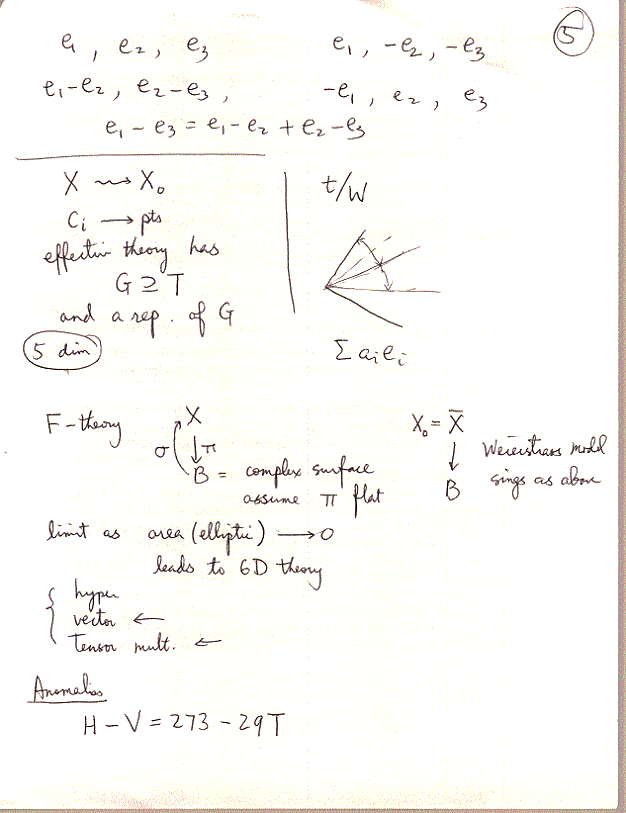 5
e₁, e₂, e₃
e₁-e₂, e₂-e₃,
e₁-e₃ = e₁-e₂+e₂-e₃
e₁, -e₂, -e₃
-e₁, e₂, e₃
X ⇝ X₀
Cᵢ → pts
effective theory has
G ⊇ T
and a rep. of G
5 dim
t/W
Σ aᵢeᵢ
F-theory
X
σ ↓π
B = complex surface
assume π flat
X₀ = X̄
↓
B
Weierstrass model
sings as above
limit as area (elliptic) → 0
leads to 6D theory
{ hyper
vector ←
tensor mult. ←
Anomalies
H-V = 273-29T